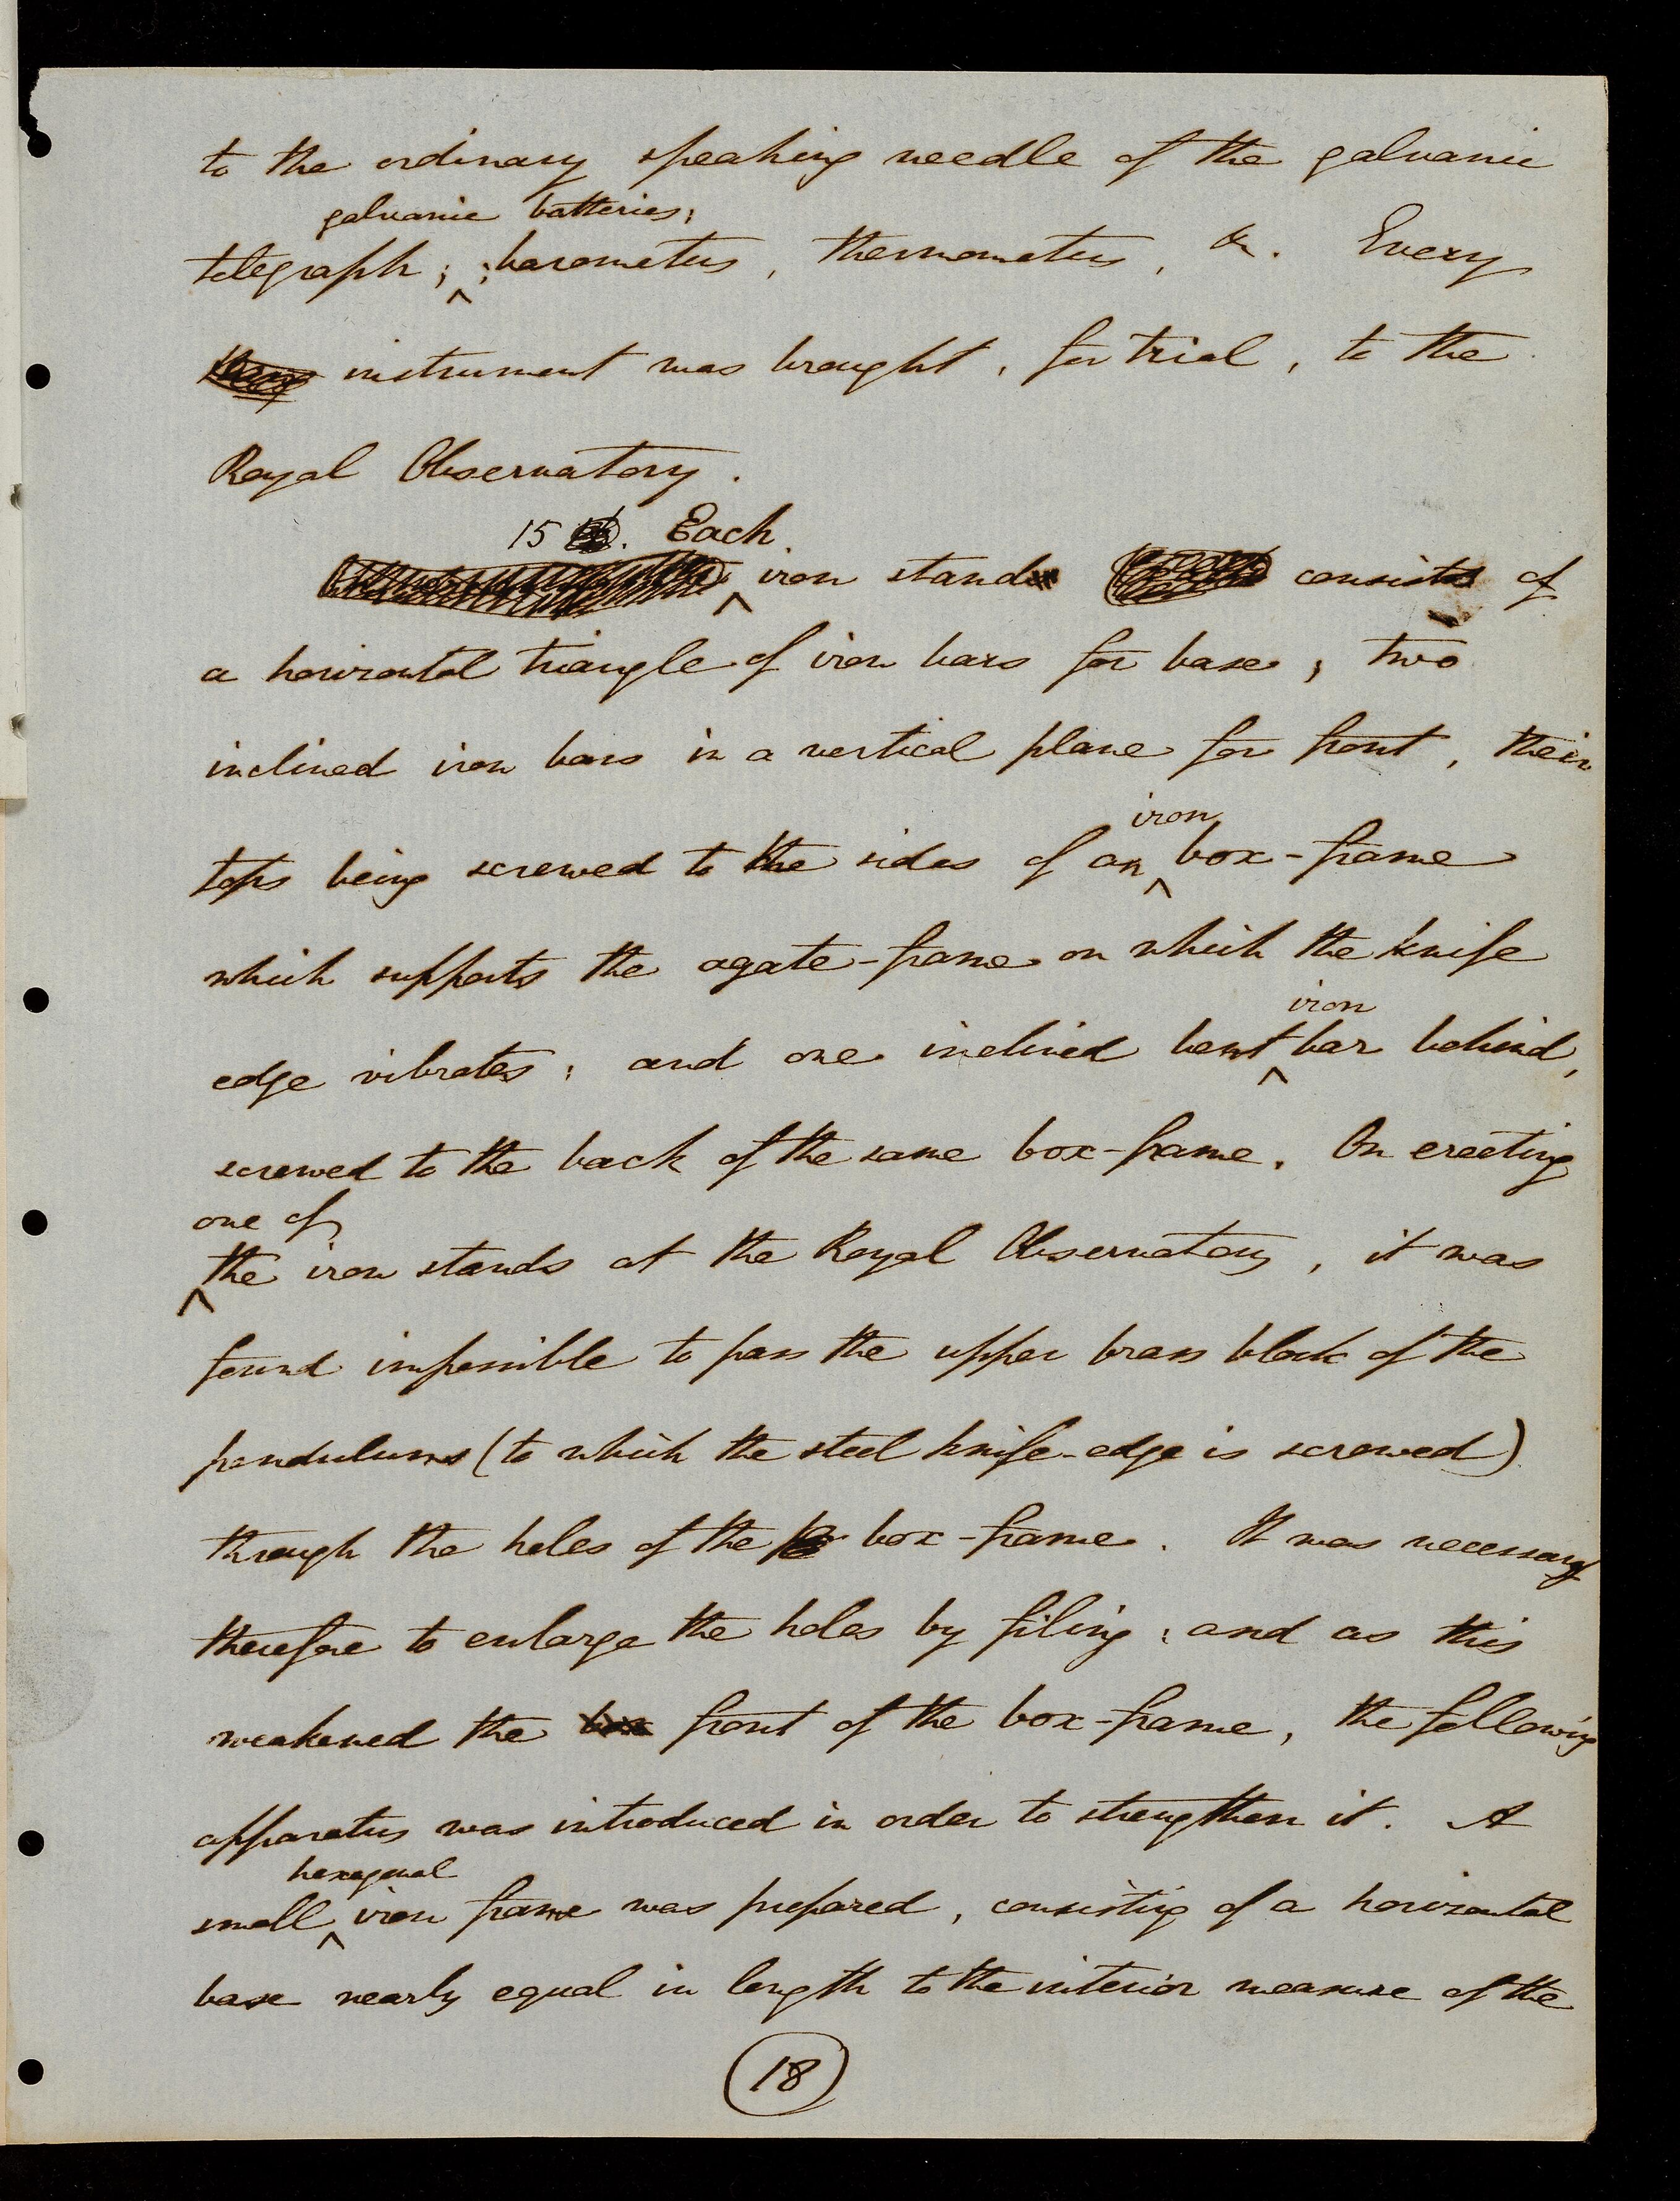 to the ordinary speaking needle of the galvanic
galvanic batteries;
telegraph; ; barometers, thermometers, &c. Every
instrument was brought, for trial, to the
Royal Observatory.
15 . Each
iron stand consists of
a horizontal triangle of iron bars for base; two
inclined iron bars in a vertical plane for front, their
iron
tops being screwed to the sides of an box-frame
which supports the agate-frame on which the knife
iron
edge vibrates; and one inclined bent bar behind,
screwed to the back of the same box-frame. On erecting
one of
the iron stands at the Royal Observatory, it was
found impossible to pass the upper brass block of the
pendulums (to which the steel knife-edge is screwed)
through the holes of the box-frame. It was necessary
therefore to enlarge the holes by filing; and as this
weakened the box front of the box-frame, the following
apparatus was introduced in order to strengthen it. A
hexagonal
small iron frame was prepared, consisting of a horizontal
base nearly equal in length to the interior measure of the
18